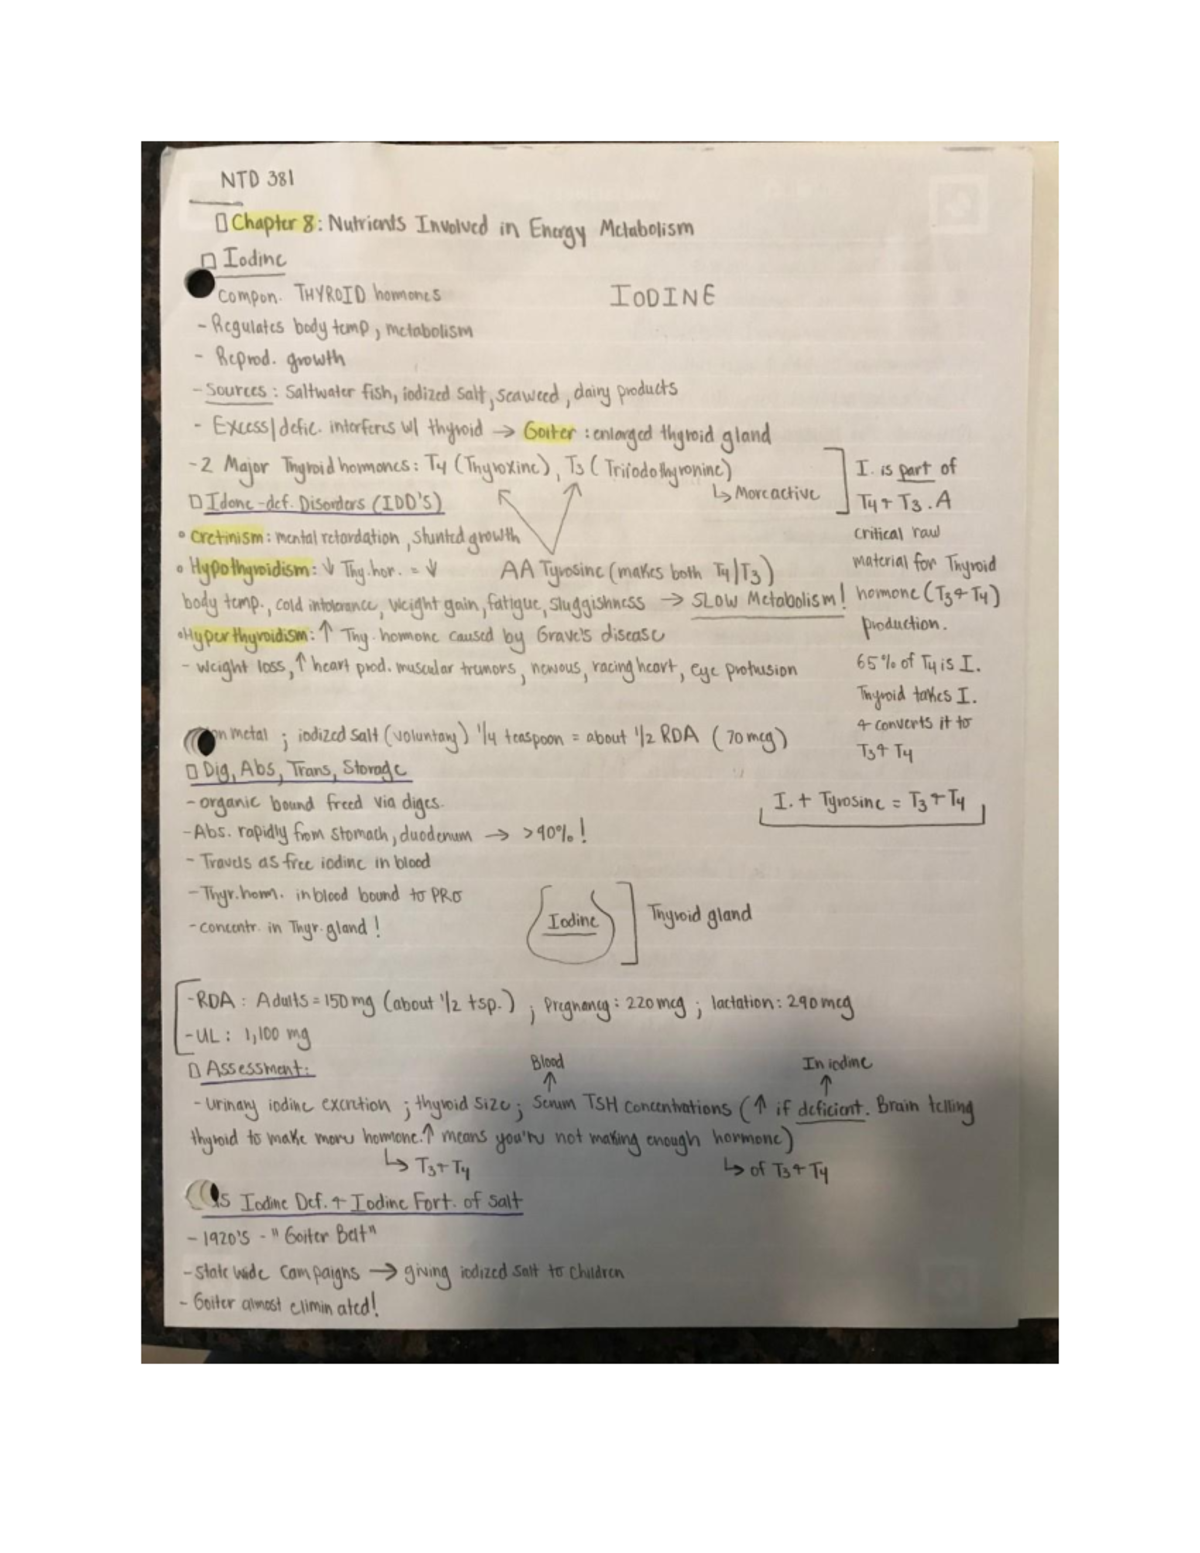 NTD 381
Chapter 8: Nutrients Involved in Energy Metabolism
Iodine
Compon. THYROID hormones
IODINE
- Regulates body temp, metabolism
- Reprod. growth
- Sources: Saltwater fish, iodized salt, seaweed, dairy products
- Excess/defic. interferes w/ thyroid → Goiter: enlarged thyroid gland
- 2 Major Thyroid hormones: T4 (Thyroxine), T3 (Triiodothyronine)
↳ More active
Idone-def. Disorders (IDD'S)
• Cretinism: mental retardation, stunted growth
• Hypothyroidism: ↓ Thy. hor. = ↓
AA Tyrosine (makes both T4/T3)
body temp., cold intolerance, weight gain, fatigue, sluggishness → SLOW Metabolism!
• Hyperthyroidism: ↑ Thy. hormone caused by Grave's disease
- weight loss, ↑ heart prod. muscular tremors, nervous, racing heart, eye protusion
I. is part of
T4 + T3. A
critical raw
material for Thyroid
homone (T3 + T4)
production.
65% of T4 is I.
Thyroid takes I.
+ converts it to
T3 + T4
n metal; iodized salt (voluntary) 1/4 teaspoon = about 1/2 RDA (70 mcg)
Dig, Abs, Trans, Storage
- organic bound freed via diges.
I. + Tyrosine = T3 + T4
- Abs. rapidly from stomach, duodenum → >90%!
- Travels as free iodine in blood
- Thyr. horm. in blood bound to PRO
- concentr. in Thyr. gland!
Iodine
Thyroid gland
- RDA: Adults = 150 mg (about 1/2 tsp.); Pregnancy: 220 mcg; lactation: 290 mcg
- UL: 1,100 mg
Assessment:
Blood
In iodine
- Urinary iodine excretion; thyroid size; Serum TSH concentrations (↑ if deficient. Brain telling
thyroid to make more hormone. ↑ means you're not making enough hormone)
↳ T3 + T4
↳ of T3 + T4
S Iodine Def. + Iodine Fort. of salt
- 1920'S - "Goiter Belt"
- State wide campaigns → giving iodized salt to children
- Goiter almost eliminated!